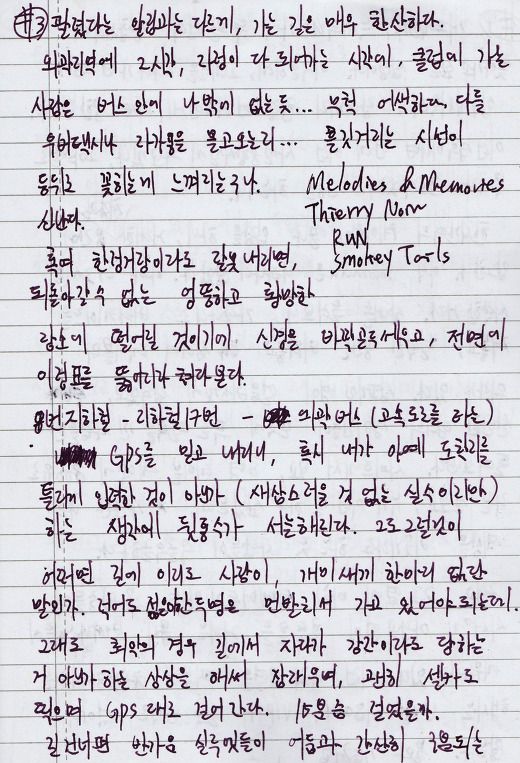 #3 팔렸다는 알림과는 다르게, 가는 길은 매우 한산하다.
외곽지역에 2시간, 자정이 다 되어가는 시간에, 클럽에 가는
사람은 버스 안에 나밖에 없는 듯... 부척 어색하다. 다들
우버택시나 자가용을 몰고오는지... 흘깃거리는 시선이
등뒤로 꽂히는게 느껴지는구나.
신난다.
Melodies & Memories
Thierry Noir
RUN
Smokey Tails
혹여 한정거장이라도 잘못 내리면,
되돌아갈 수 없는 엉뚱하고 황망한
장소에 떨어질 것이기에 신경을 바짝곤두세우고, 전면에
이정표를 뚫어져라 쳐다본다.
8번지하철 - 지하철 7구번 - 외곽버스 (고속도로를 타는)
GPS를 믿고 내리니, 혹시 내가 아예 도착지를
틀리게 입력한 것이 아닌가 (새삼스러울 것 없는 실수이리만)
하는 생각에 뒷통수가 서늘해진다. 그도 그럴것이
어쩌면 길에 이리도 사람이, 개미새끼 한마리 없단
말인가. 적어도 젊은이 한두명은 먼발치서 가고 있어야 되는데.
그대로 최악의 경우 길에서 자다가 강간이라도 당하는
거 아닌가 하는 상상을 애써 잠재우며, 괜히 셀카도
찍으며 GPS 대로 걸어간다. 15분쯤 걸었을까.
길건너편 반가운 실루엣들이 어둠과 간신히 구분되는